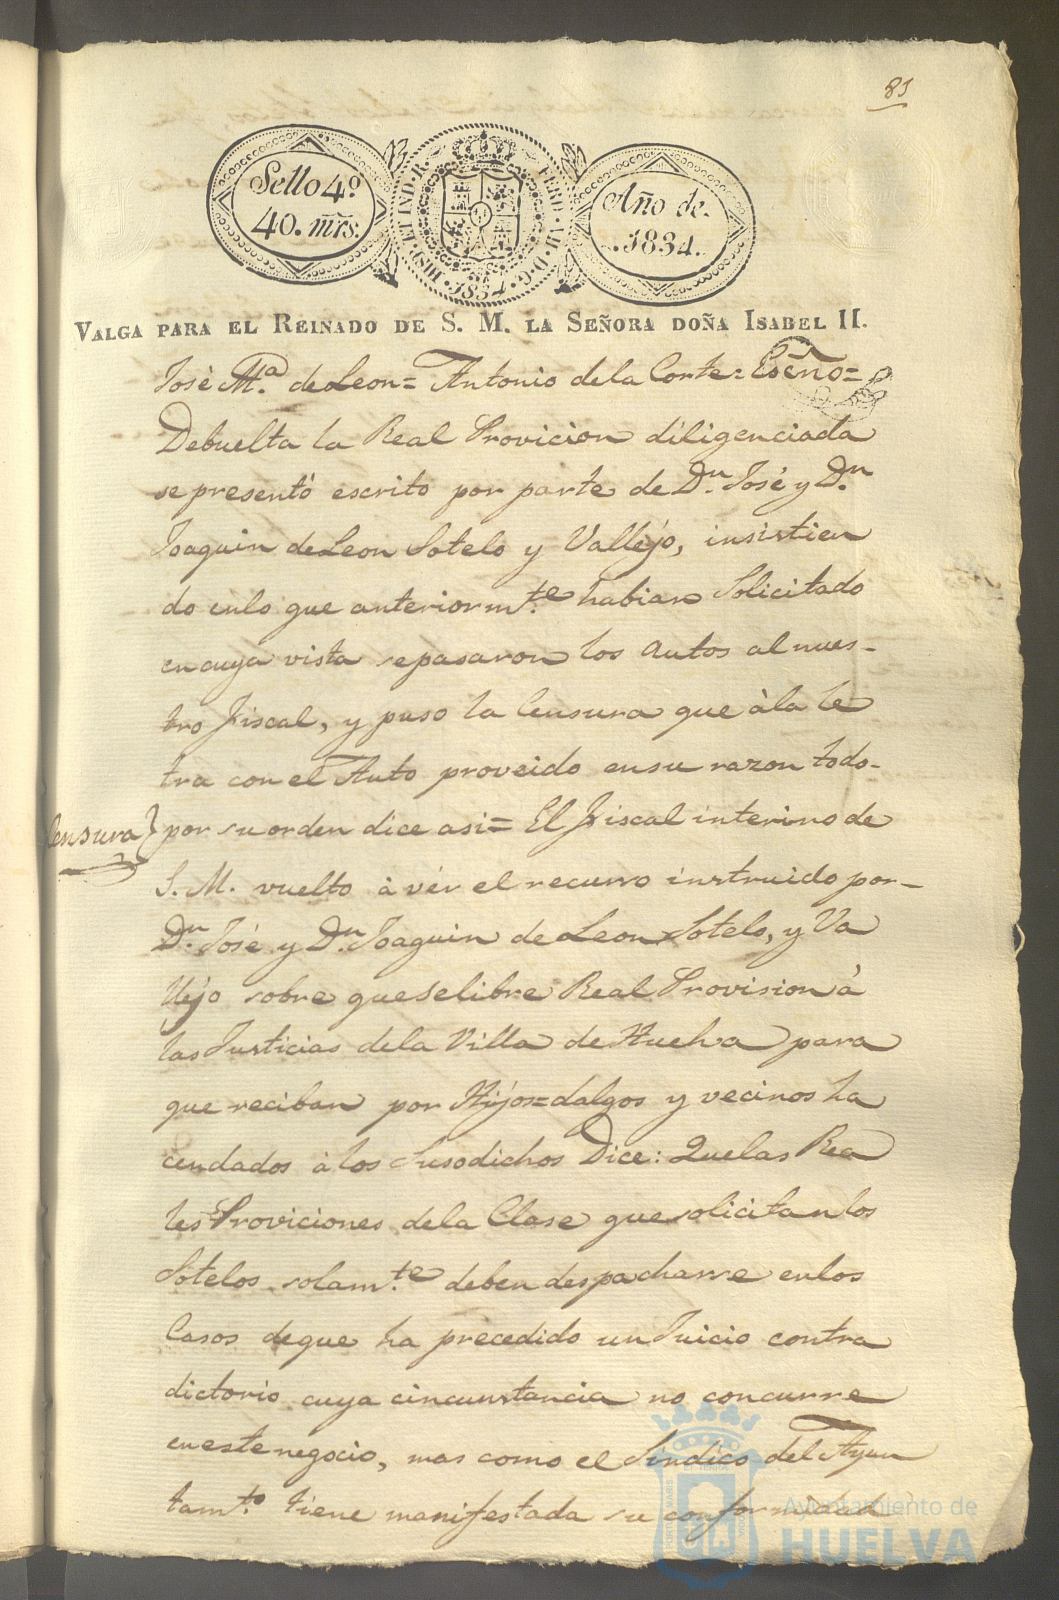 81
Sello 4º
40. mrs.
HISP. ET IND. R.
FERD. VII. D. G.
1834
Año de
1834.
VALGA PARA EL REINADO DE S. M. LA SEÑORA DOÑA ISABEL II.
José Mª. de Leon= Antonio dela Corte= Esño=
Debuelta la Real Provicion diligenciada
se presentó escrito por parte de Dn. José y Dn.
Joaquin de Leon Sotelo y Vallejo, insistien
do enlo que anteriormte. habian Solicitado
en cuya vista se pasaron los autos al nues-
tro Fiscal, y puso la Censura que àla le
tra con el Auto proveido ensu razon todo-
Censura} por su orden dice asi= El Fiscal interino de
S. M. vuelto à vér el recurso instruido por-
Dn. José y Dn. Joaquin de Leon Sotelo, y Va
llejo sobre que se libre Real Provision à
las Justicias dela Villa de Huelva para
que reciban por Hijos=dalgos y vecinos ha
cendados à los Susodichos Dice: Que las Rea
les Proviciones dela Clase que solicitan los
Sotelos solamte. deben despacharse enlos
Casos deque ha precedido un Juicio contra
dictorio cuya circunstancia no concurre
en este negocio, mas como el Síndico del Ayun
tamto. tiene manifestada su conformidad
Ayuntamiento de
HUELVA